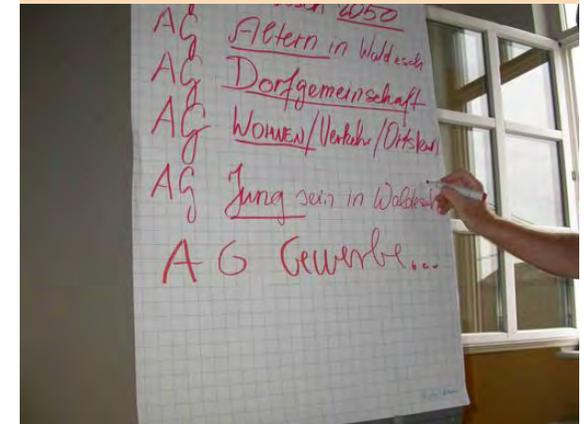 2050
AG Altern in Waldesch
AG Dorfgemeinschaft
AG WOHNEN/Verkehr/Ortskern
AG Jung sein in Waldesch
AG Gewerbe...